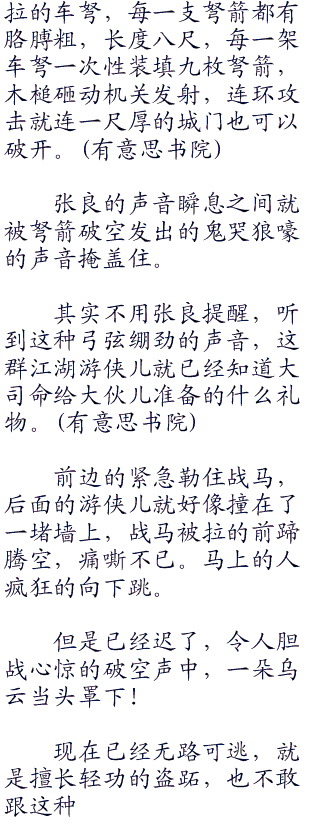 拉的车弩，每一支弩箭都有
胳膊粗，长度八尺，每一架
车弩一次性装填九枚弩箭，
木槌砸动机关发射，连环攻
击就连一尺厚的城门也可以
破开。（有意思书院）
张良的声音瞬息之间就
被弩箭破空发出的鬼哭狼嚎
的声音掩盖住。
其实不用张良提醒，听
到这种弓弦绷劲的声音，这
群江湖游侠儿就已经知道大
司命给大伙儿准备的什么礼
物。（有意思书院）
前边的紧急勒住战马，
后面的游侠儿就好像撞在了
一堵墙上，战马被拉的前蹄
腾空，痛嘶不已。马上的人
疯狂的向下跳。
但是已经迟了，令人胆
战心惊的破空声中，一朵乌
云当头罩下！
现在已经无路可逃，就
是擅长轻功的盗跖，也不敢
跟这种